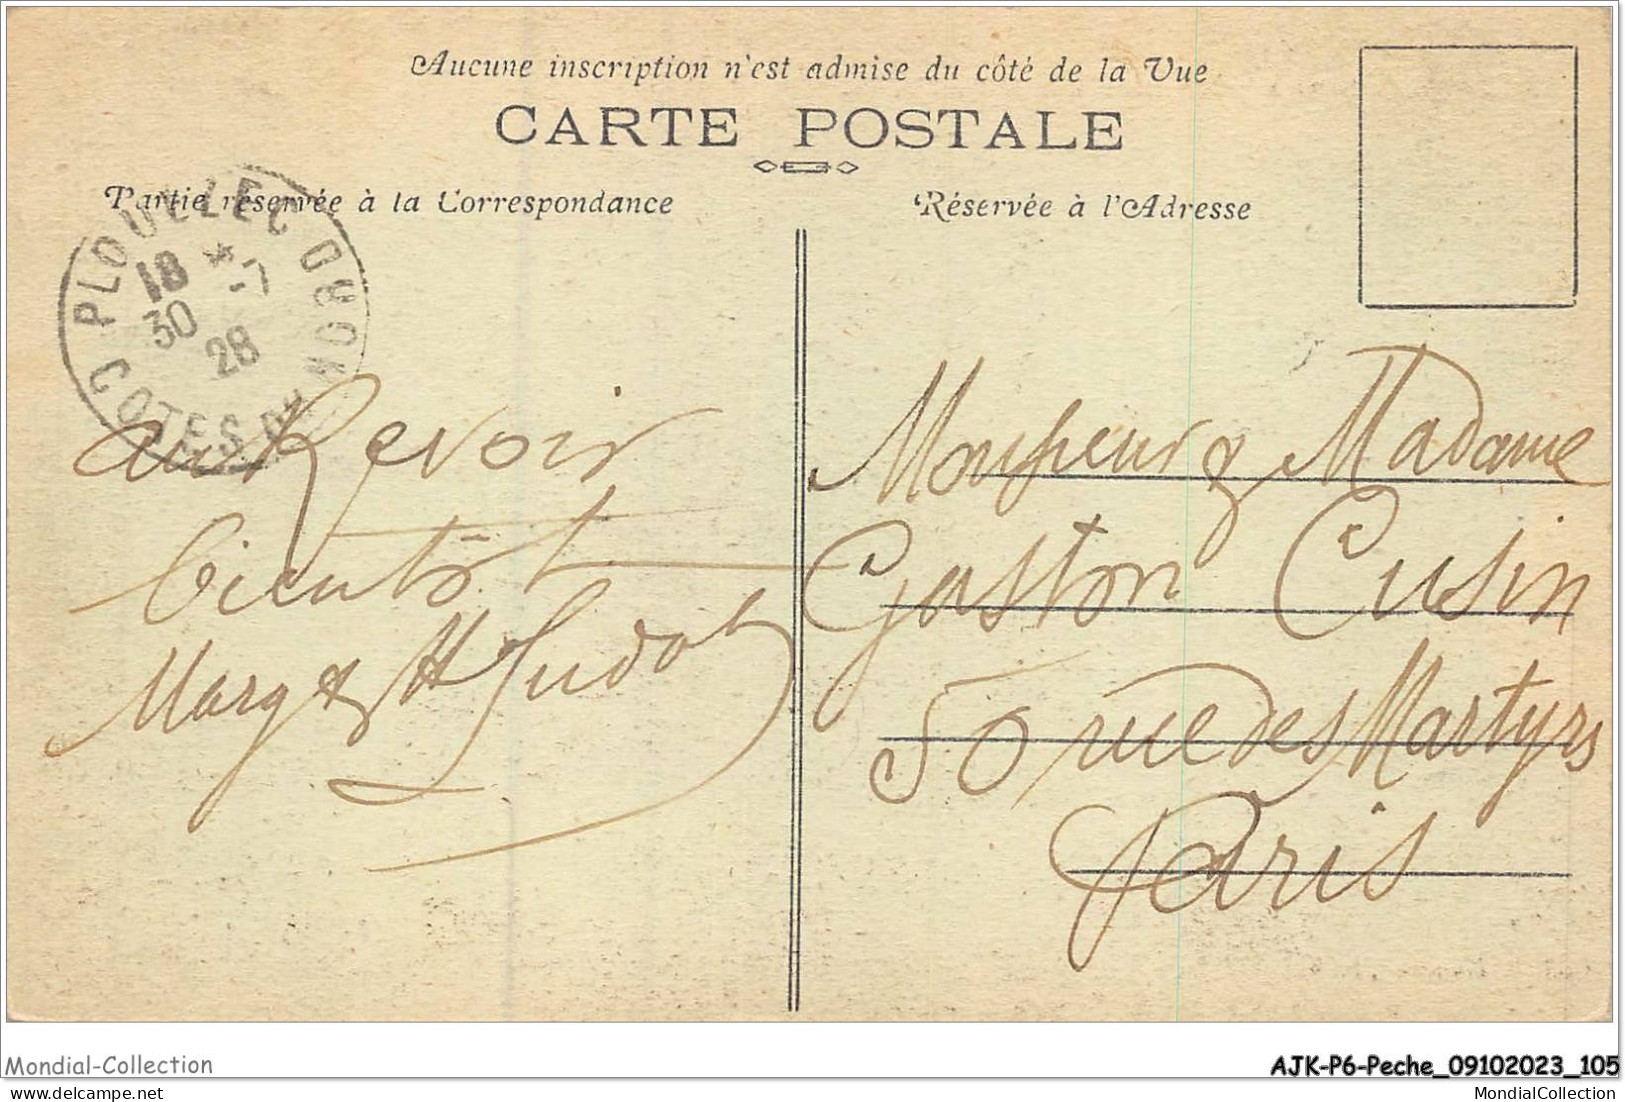 Aucune inscription n'est admise du côté de la Vue
CARTE POSTALE
Partie réservée à la Correspondance
Réservée à l'Adresse
PLOUEZEC
18 *
30 -7
28
COTES DU NORD
au Revoir
bientôt
Marg & H
Monsieur & Madame
Gaston Cusin
50 rue des Martyrs
Paris
Mondial-Collection
AJK-P6-Peche_09102023_105
MondialCollection